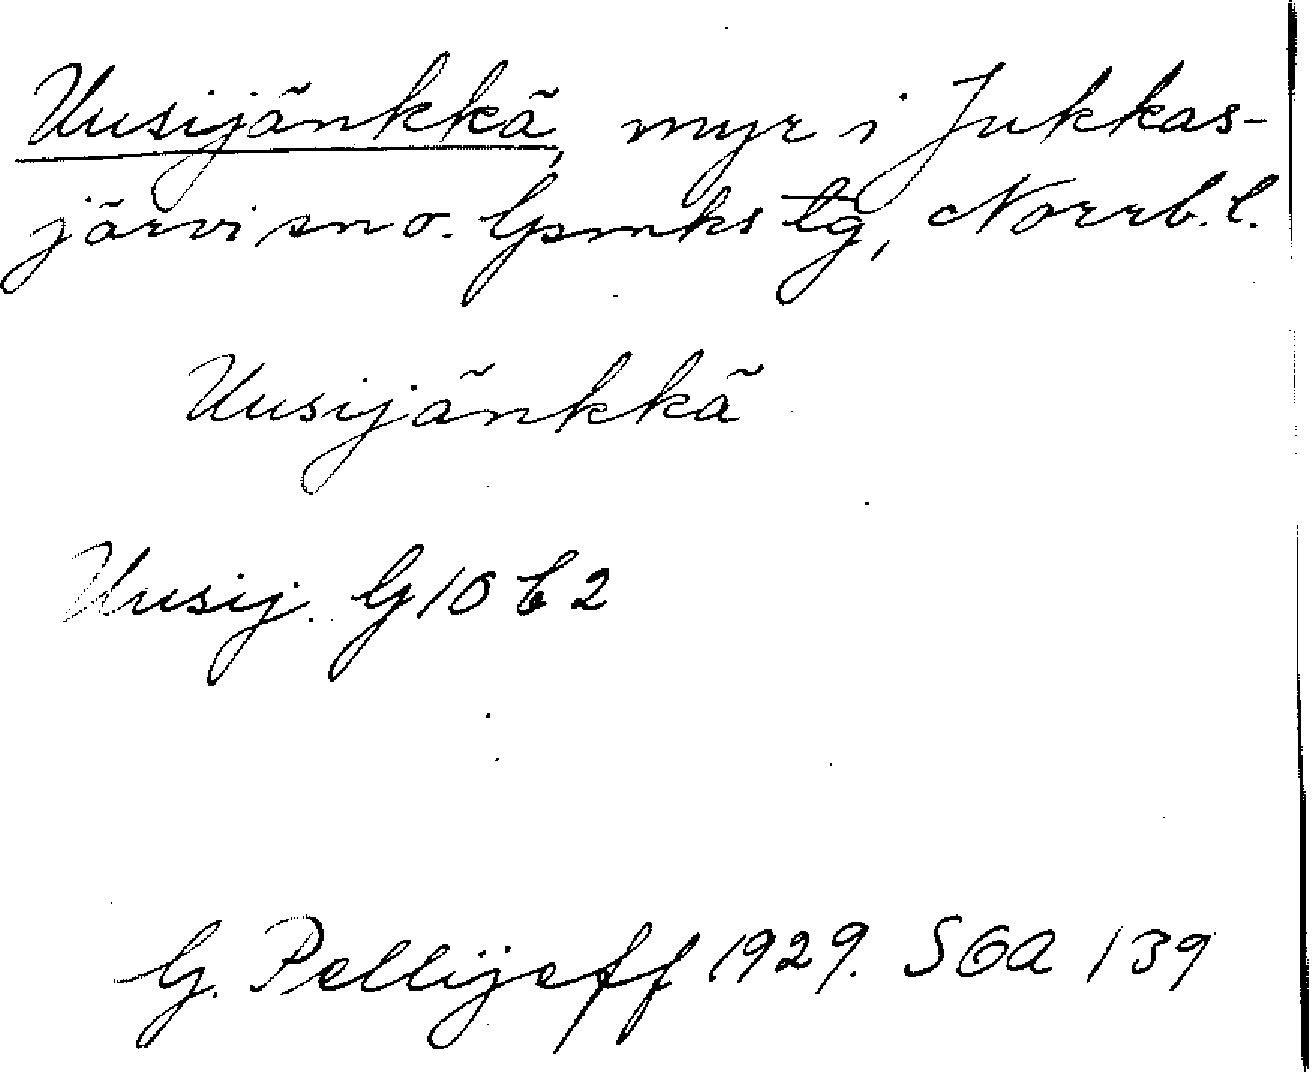 Uusijänkkä, myr i Jukkas-
järvi sn o. Gsmks tg, Norrb. l.
Uusijänkkä
Uusij. G 10 b 2
G. Pellijeff 1929. SOA 139